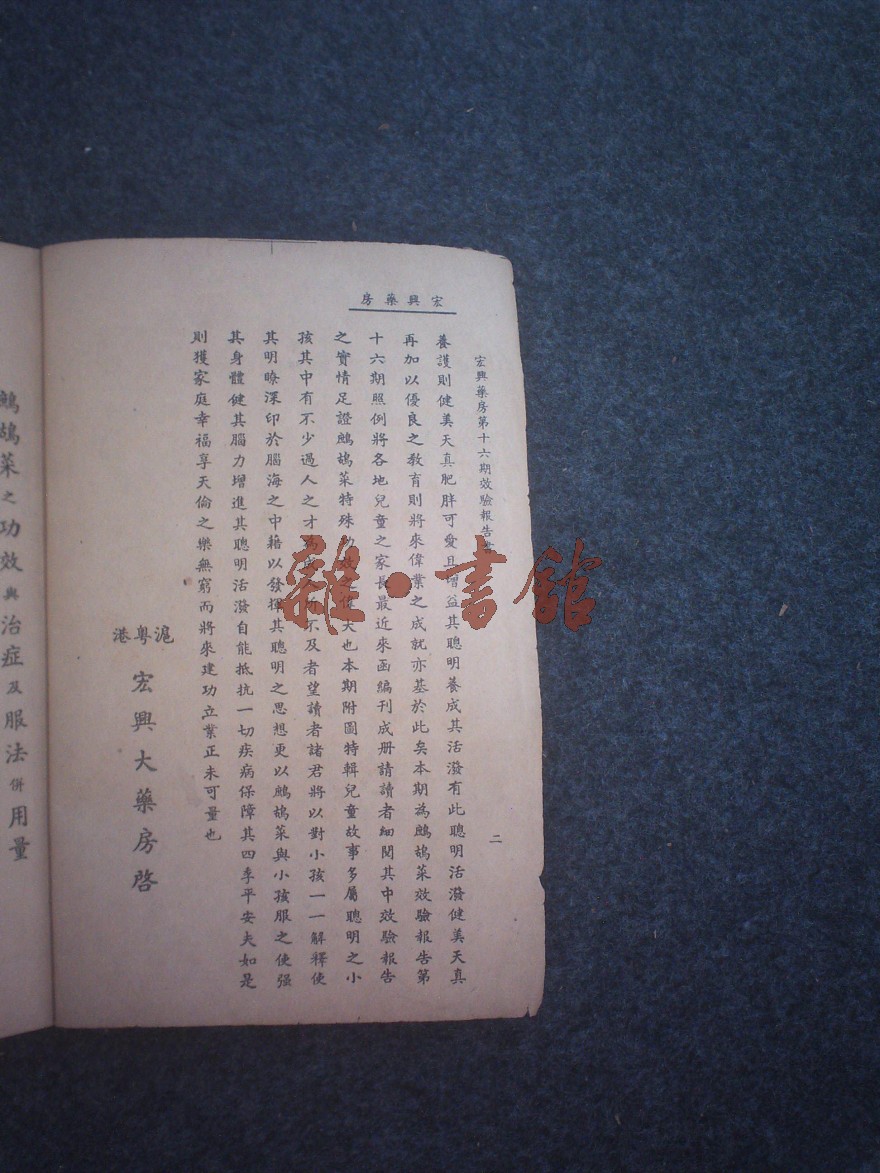 宏興藥房
宏興藥房第十六期效驗報告書
二
養護則健美天真肥胖可愛且增益其聰明養成其活潑有此聰明活潑健美天真
再加以優良之教育則將來偉業之成就亦基於此矣本期為鷓鴣菜效驗報告第
十六期照例將各地兒童之家長最近來函編刊成册請讀者細閱其中效驗報告
之實情足證鷓鴣菜特殊功效之偉大也本期附圖特輯兒童故事多屬聰明之小
孩其中有不少過人之才為成人所不及者望讀者諸君將以對小孩一一解釋使
其明瞭深印於腦海之中藉以發揮其聰明之思想更以鷓鴣菜與小孩服之使强
其身體健其腦力增進其聰明活潑自能抵抗一切疾病保障其四季平安夫如是
則獲家庭幸福享天倫之樂無窮而將來建功立業正未可量也
滬粤港
宏興大藥房啓
鷓鴣菜之功效與治症及服法併用量
雜·書館